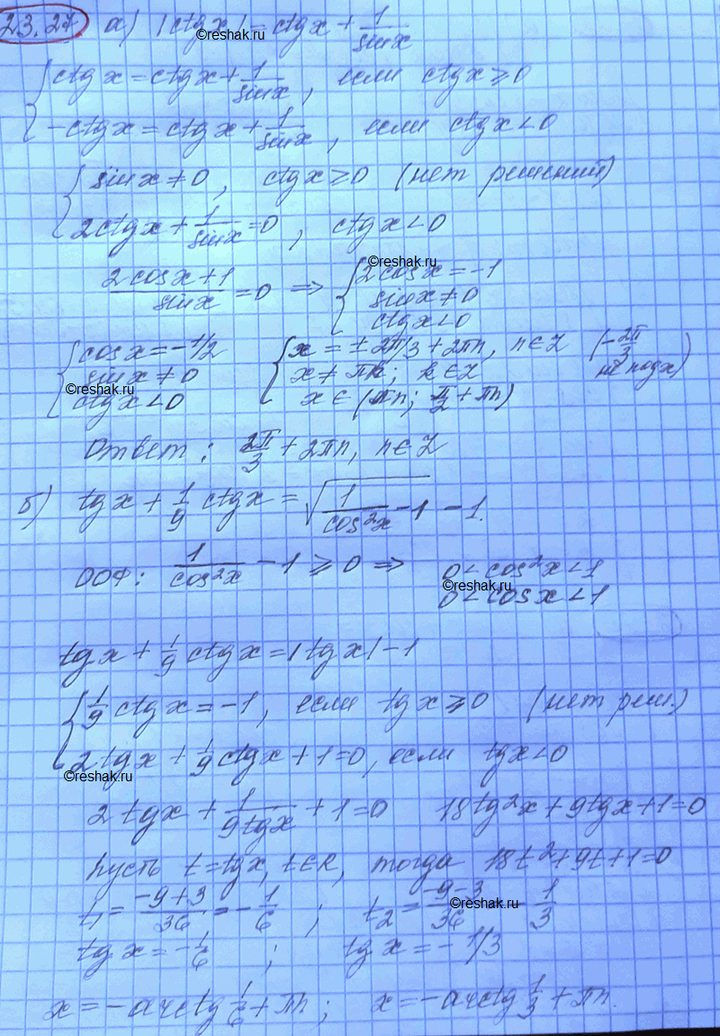 23.27 а) |ctg x| = ctg x + 1/sin x
©reshak.ru
{ ctg x = ctg x + 1/sin x, если ctg x ≥ 0
-ctg x = ctg x + 1/sin x, если ctg x < 0
{ sin x ≠ 0, ctg x ≥ 0 (нет решений)
2ctg x + 1/sin x = 0, ctg x < 0
©reshak.ru
(2cos x + 1)/sin x = 0 ⇒ { 2cos x = -1
sin x ≠ 0
ctg x < 0
{ cos x = -1/2 { x = ± 2π/3 + 2πn, n ∈ Z (-2π/3
sin x ≠ 0 x ≠ πk; k ∈ Z не подх)
©reshak.ru
ctg x < 0 x ∈ (πn; π/2 + πn)
Ответ: 2π/3 + 2πn, n ∈ Z
б) tg x + 1/9 ctg x = √(1/cos²x - 1) - 1.
ООФ: 1/cos²x - 1 ≥ 0 ⇒ 0 < cos²x < 1
©reshak.ru
0 < cos x < 1
tg x + 1/9 ctg x = |tg x| - 1
{ 1/9 ctg x = -1, если tg x ≥ 0 (нет реш.)
2 tg x + 1/9 ctg x + 1 = 0, если tg x < 0
©reshak.ru
2 tg x + 1/(9 tg x) + 1 = 0 18tg²x + 9tg x + 1 = 0
Пусть t = tg x, t ∈ R, тогда 18t² + 9t + 1 = 0
t₁ = (-9+3)/36 = -1/6 ; t₂ = (-9-3)/36 - 1/3
©reshak.ru
tg x = -1/6 ; tg x = -1/3
x = -arctg 1/6 + πn; x = -arctg 1/3 + πn.